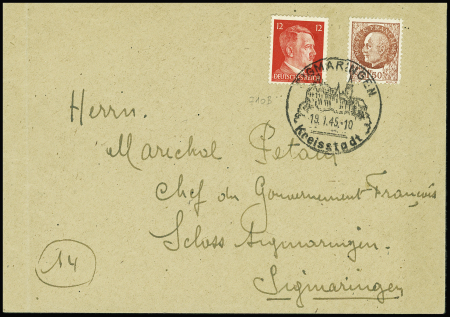 12 12
DEUTSCHES REICH
1F50
SIGMARINGEN
19.1.45.-10
Kreisstadt
Herrn.
Marechal Petain
Chef du Gouvernement Français
Schoss Sigmaringen.
Sigmaringen
14